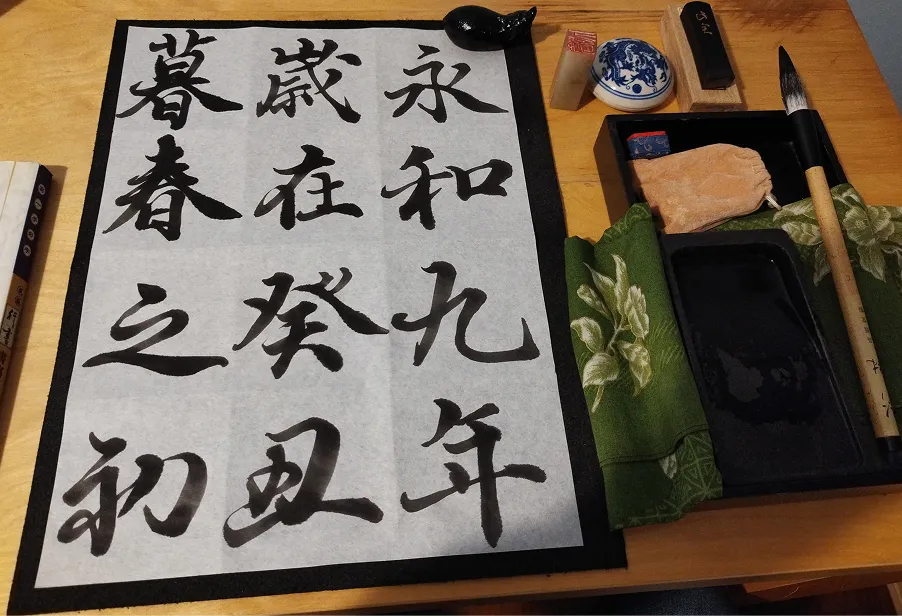 永和九年
歳在癸丑
暮春之初